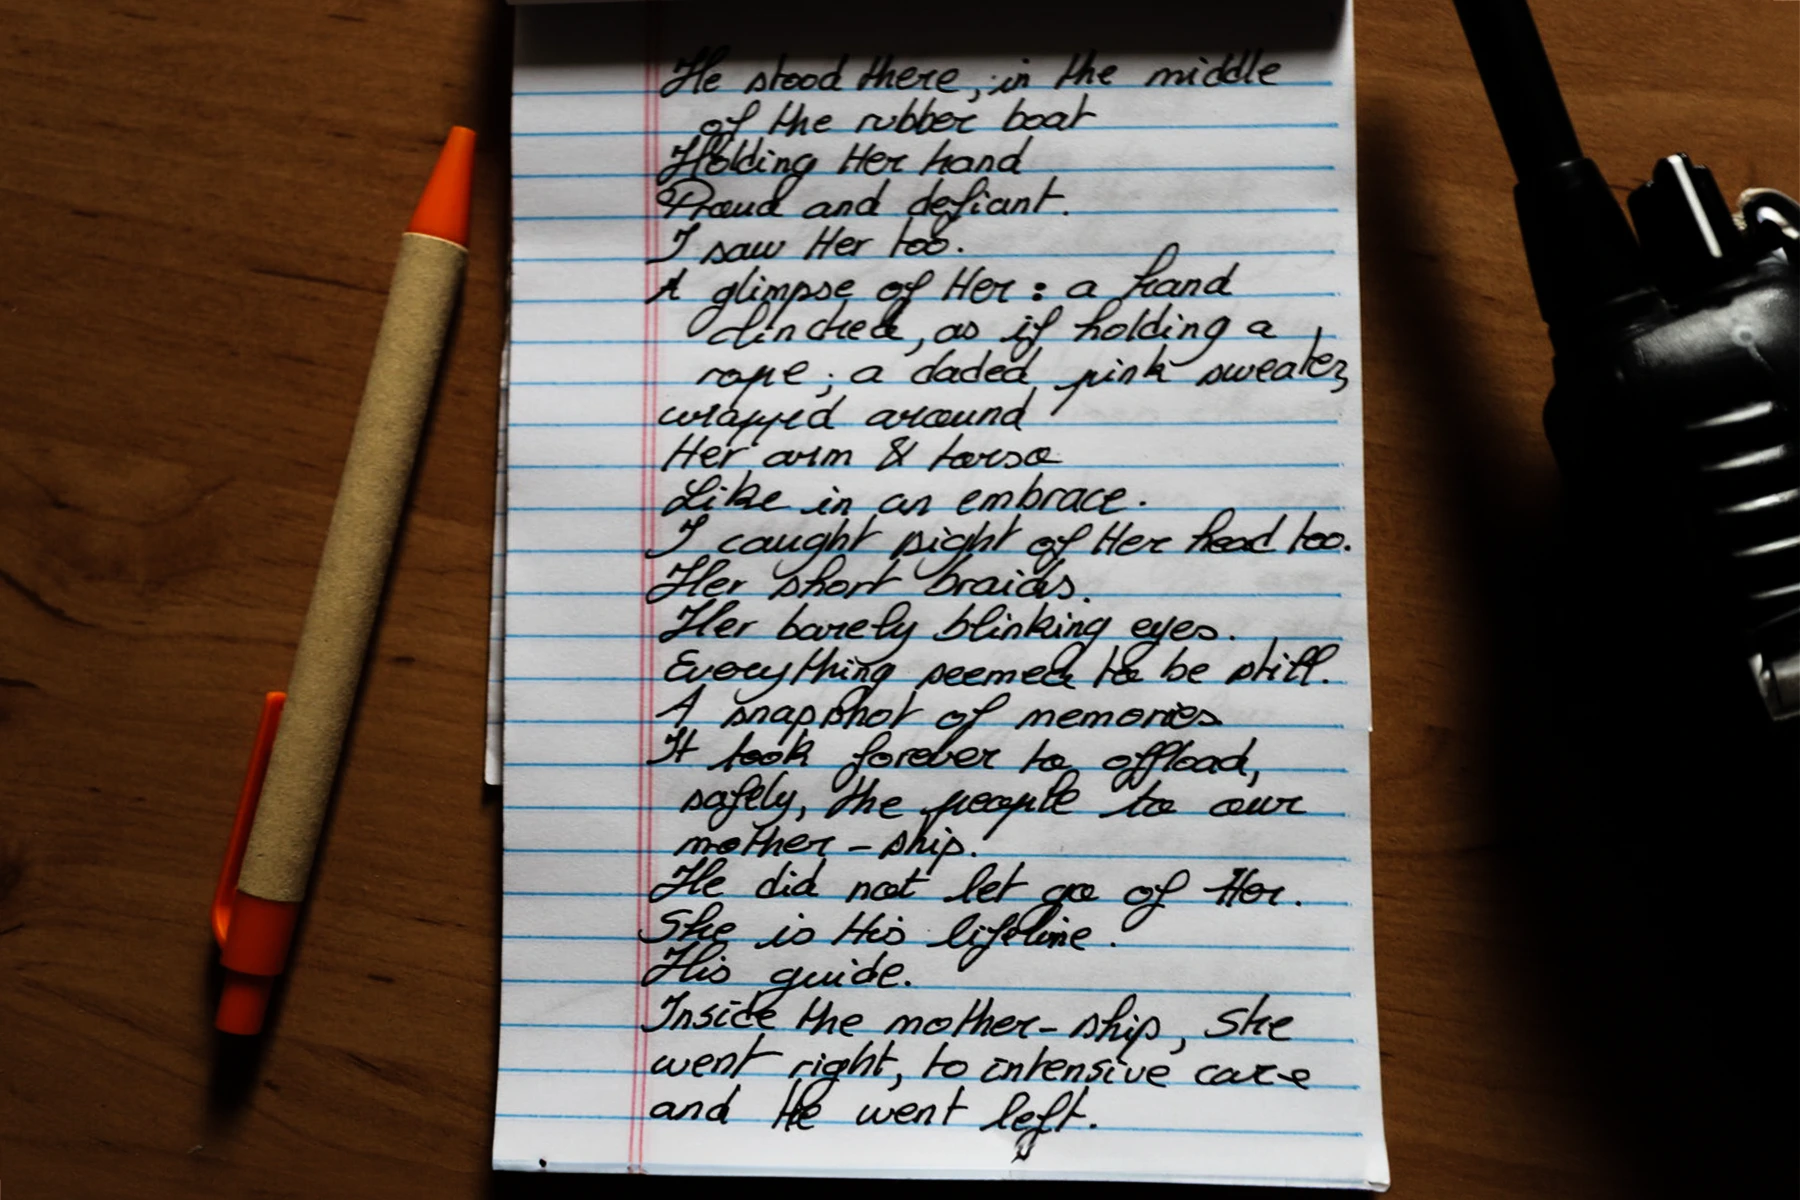 He stood there, in the middle
of the rubber boat
Holding Her hand
Proud and defiant.
I saw Her too.
A glimpse of Her: a hand
clinched, as if holding a
rope; a daded pink sweater,
wrapped around
Her arm & torso
Like in an embrace.
I caught sight of Her head too.
Her short braids.
Her barely blinking eyes.
Everything seemed to be still.
A snapshot of memories
It took forever to offload,
safely, the people to our
mother-ship.
He did not let go of Her.
She is His lifeline.
His guide.
Inside the mother-ship, She
went right, to intensive care
and He went left.